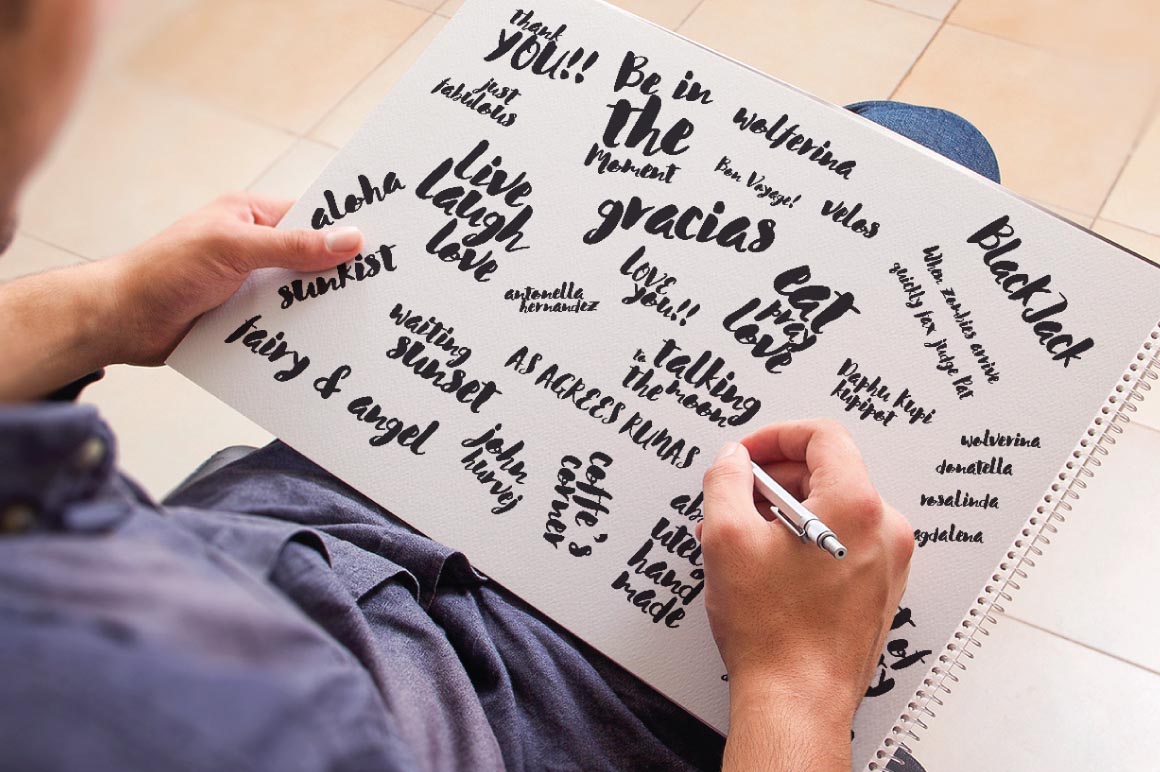 thank
YOU!!
just
fabulous
Be in
the
Moment
wolferina
Bon Voyage!
velos
live
laugh
love
aloha
sunkist
gracias
BlackJack
When Zombies arrive
fax judge Pat
LOVE
you!!
antonella
hernandez
eat
pray
love
waiting
sunset
fairy & angel
AS AGREES RUNAS
to talking
the moon
Daphu Kupi
Kupipot
john
hurvej
coffe'
corner
hand
made
wolverina
donatella
rosalinda
agdalena
of